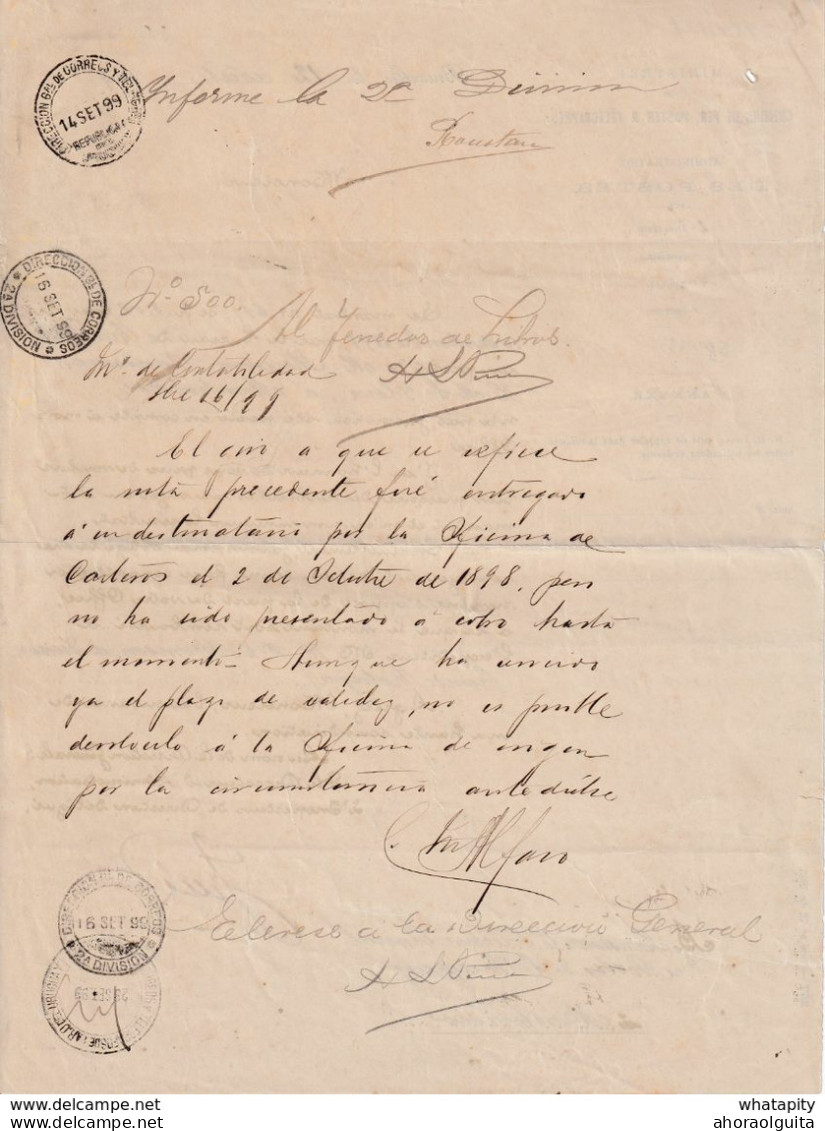 DIRECCION GRL DE CORREOS Y TELEGRAFOS
14 SET 99
REPUBLICA
Informe la 2a Division
DIRECCION GRL DE CORREOS
16 SET 99
2A DIVISION
No. 500.
Al Tenedor de Libros.
de Contabilidad
Sbre 16/99
El giro a que se refiere
la nota precedente fué entregado
á su destinatario por la Oficina de
Carteros el 2 de Octubre de 1898, pero
no ha sido presentado á cobro hasta
el momento. Aunque ha vencido
ya el plazo de validez, no es posible
devolverlo á la Oficina de origen
por la circunstancia antedicha
Alfaro
DIRECCION GRL DE CORREOS
16 SET 99
2A DIVISION
Elevese a la Direccion General
URUGUAY
SET 99
whatapity
ahoraolguita